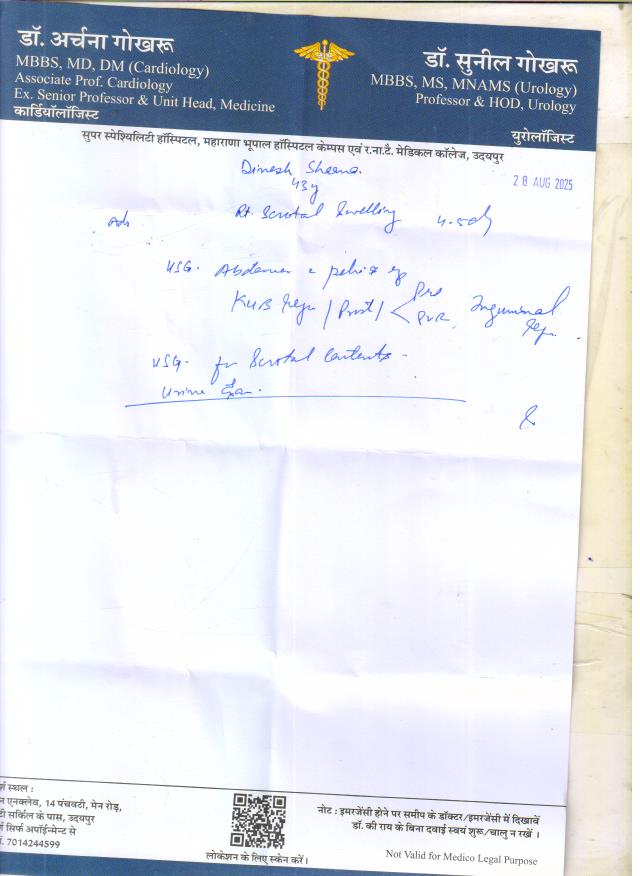 डॉ. अर्चना गोखरू
MBBS, MD, DM (Cardiology)
Associate Prof. Cardiology
Ex. Senior Professor & Unit Head, Medicine
कार्डियॉलॉजिस्ट
डॉ. सुनील गोखरू
MBBS, MS, MNAMS (Urology)
Professor & HOD, Urology
युरोलॉजिस्ट
सुपर स्पेश्यिलिटी हॉस्पिटल, महाराणा भूपाल हॉस्पिटल केम्पस एवं र.ना.टै. मेडिकल कॉलेज, उदयपुर
28 AUG 2025
Dinesh
43y
Adv. Rt. Scrotal Swelling
USG. Abdomen
KUB / Prost / Pre
PVR Inguinal
USG. for Scrotal Contents -
Urine
एनक्लेव, 14 पंचवटी, मेन रोड़,
सर्किल के पास, उदयपुर
सिर्फ अपॉईन्मेन्ट से
7014244599
लोकेशन के लिए स्केन करें।
नोट : इमरजेंसी होने पर समीप के डॉक्टर/इमरजेंसी में दिखावें
डॉ. की राय के बिना दवाई स्वयं शुरू/चालु न रखें ।
Not Valid for Medico Legal Purpose